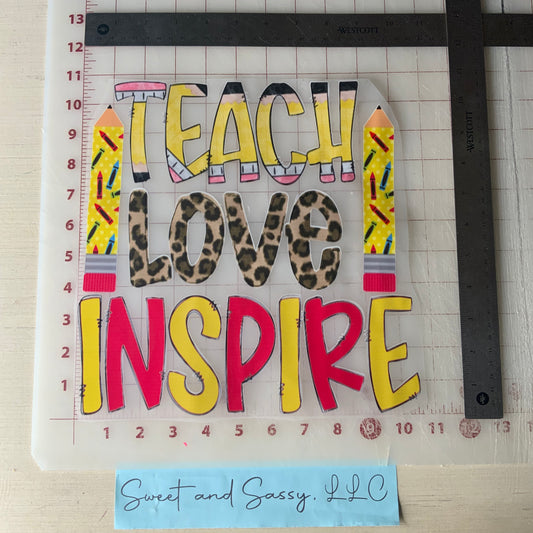 WESTCOTT
WESTCOTT
13
12
11
10
9
8
7
6
5
4
3
2
1
TEACH
LOVE
INSPIRE
1 2 3 4 5 6 7 8 9 10 11 12 13
Sweet and Sassy, LLC